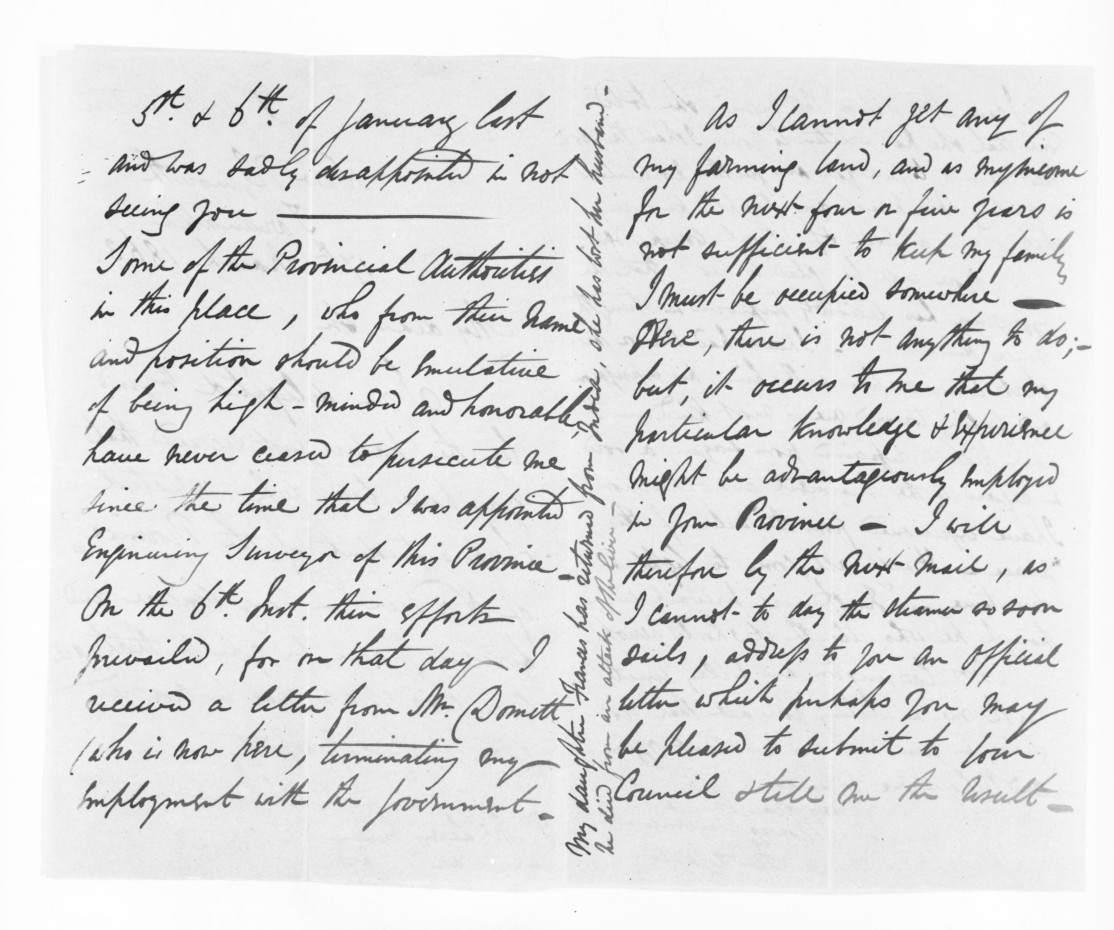 5th. & 6th. of January last
and was sadly disappointed in not
seeing you ———
Some of the Provincial Authorities
in this place, who from their name
and position should be emulative
of being high-minded and honorable,
have never ceased to persecute me
since the time that I was appointed
Engineering Surveyor of this Province
On the 6th. Inst. their efforts
prevailed, for on that day I
received a letter from Mr. Domett
(who is now here, terminating my
employment with the Government. -
My daughter Frances has returned from India, she has lost her husband -
he died from an attack of the liver -
As I cannot get any of
my farming land, and as my income
for the next four or five years is
not sufficient to keep my family
I must be occupied somewhere —
Here, there is not anything to do; -
but, it occurs to me that my
particular knowledge & experience
might be advantageously employed
in your Province — I will
therefore by the next mail, as
I cannot to day the steamer so soon
sails, address to you an Official
letter which perhaps you may
be pleased to submit to your
Council & tell me the result -